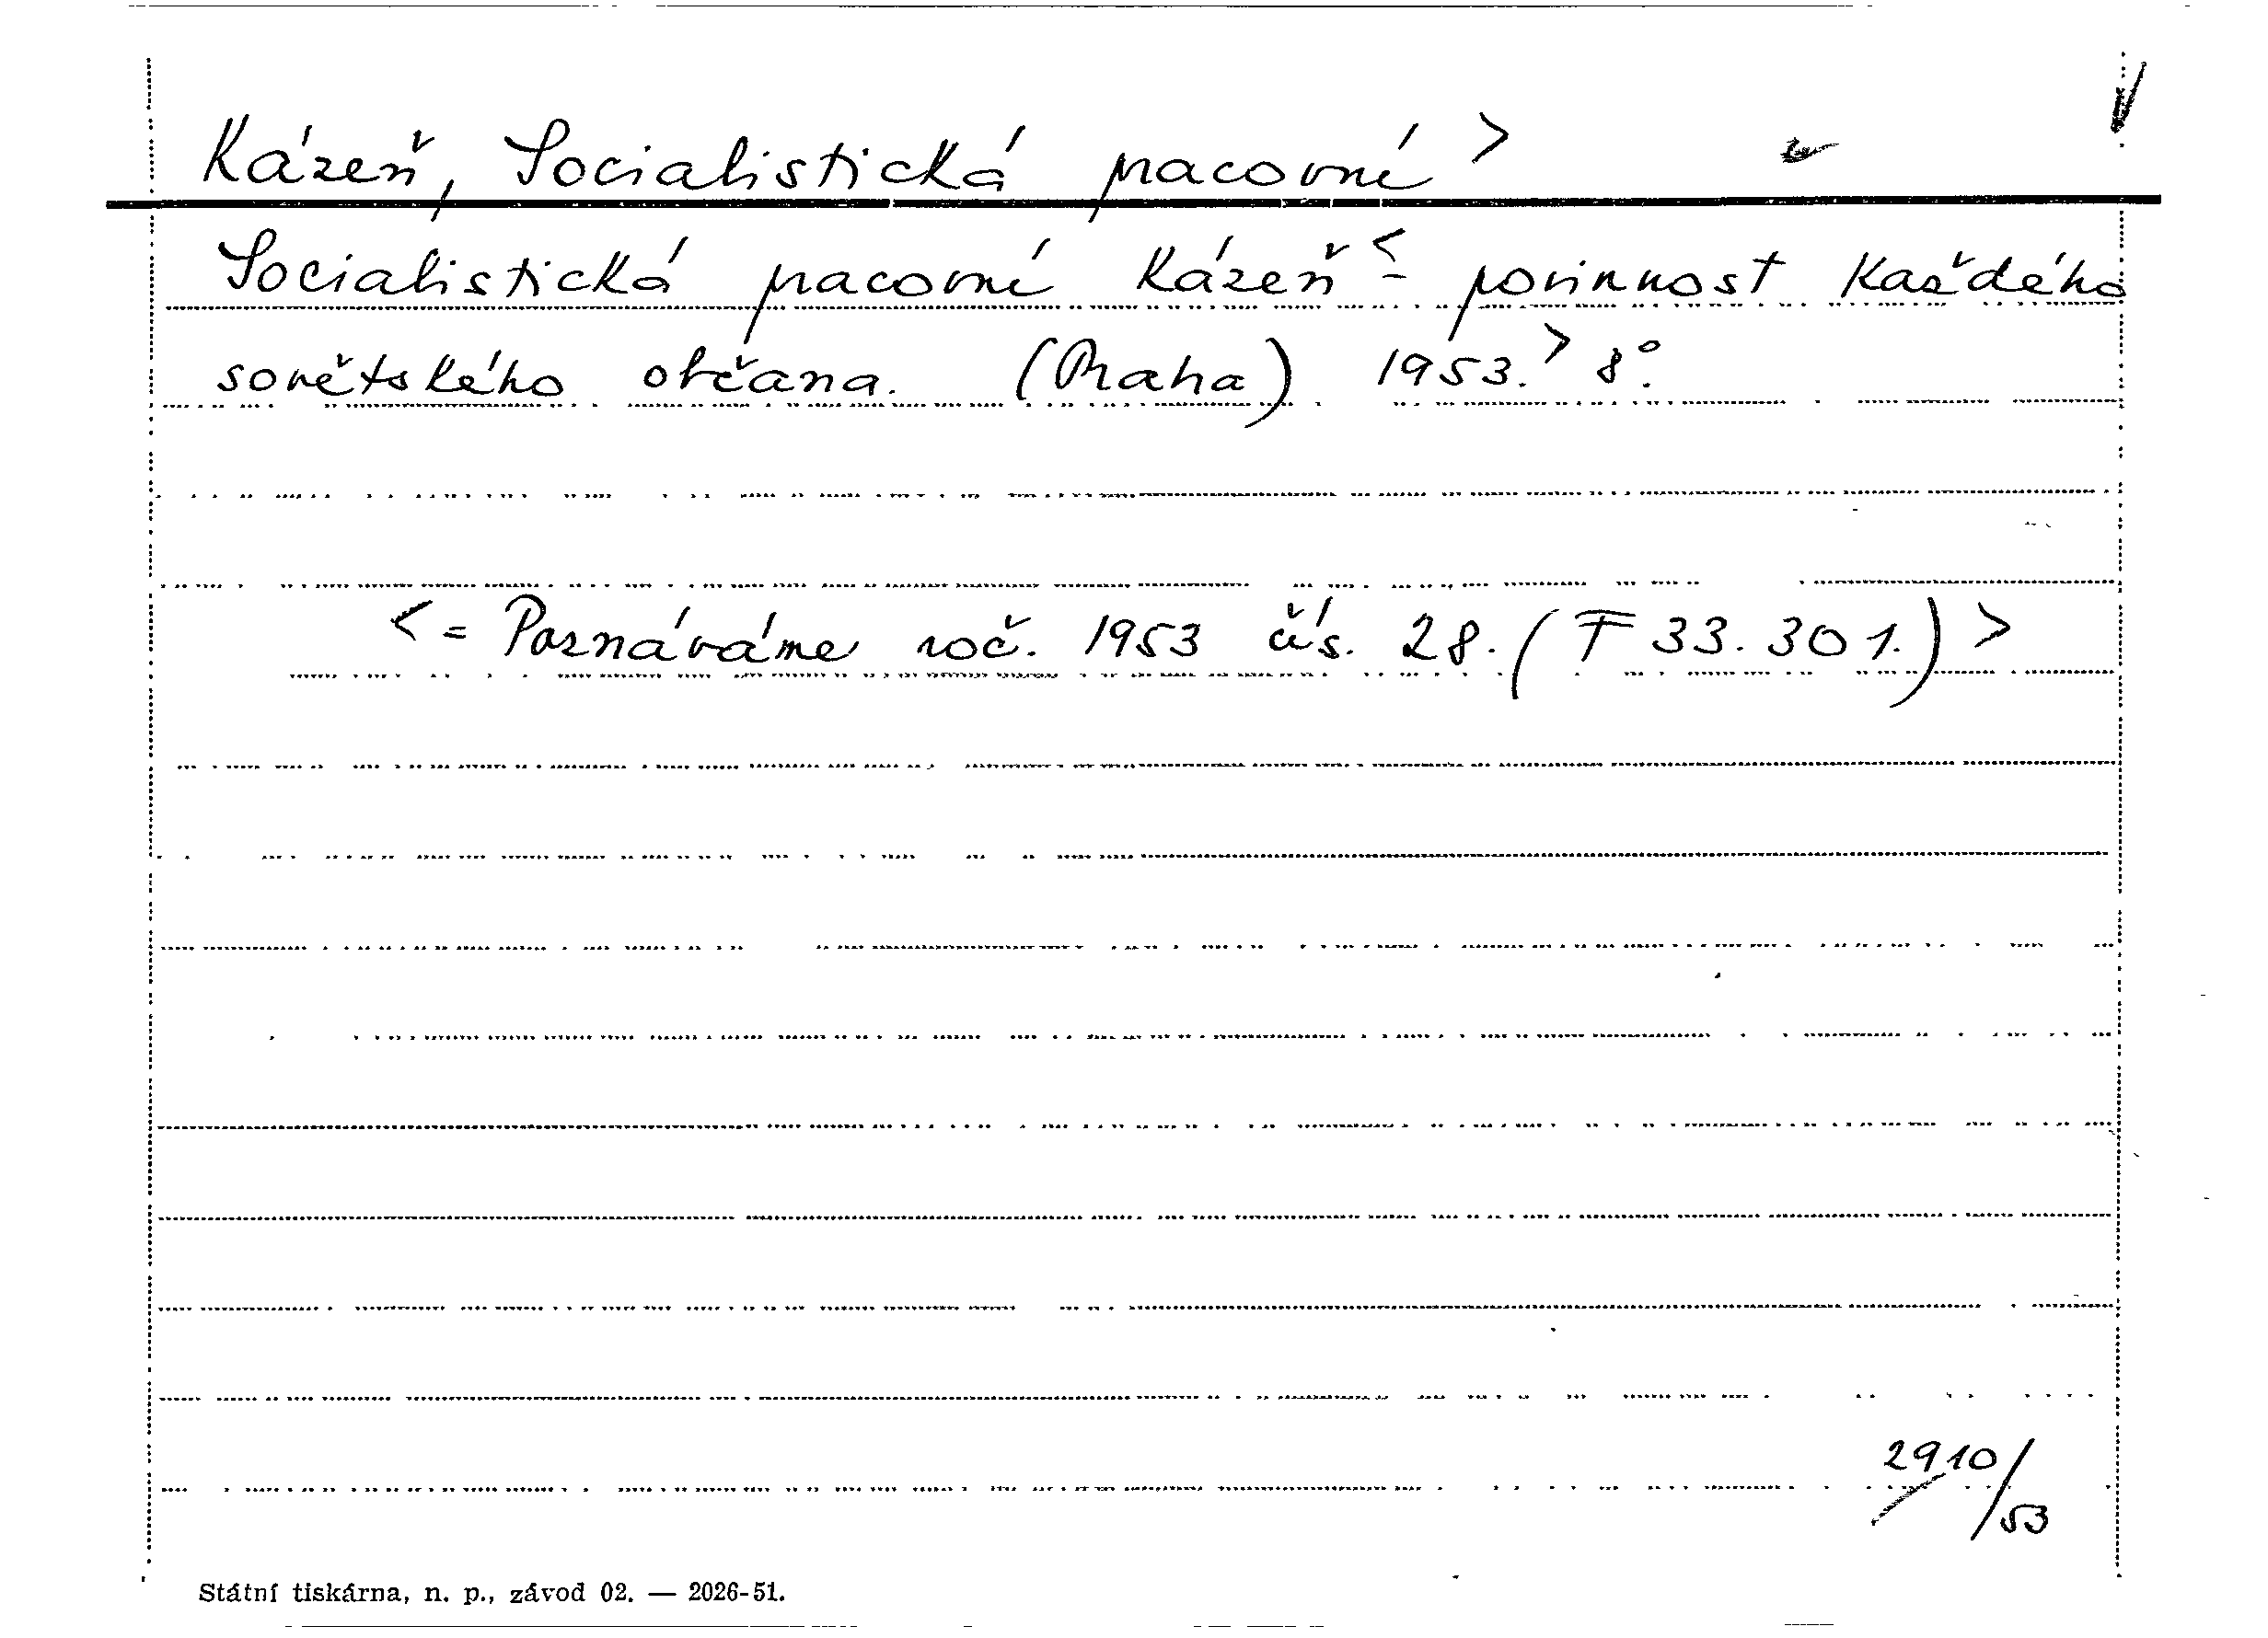 Kázeň, Socialistická pracovní >
Socialistická pracovní kázeň < - povinnost každého
sovětského občana. (Praha) 1953. > 8°.
< = Poznáváme roč. 1953 čís. 28. (F 33.301.) >
2910/53
Státní tiskárna, n. p., závod 02. — 2026-51.